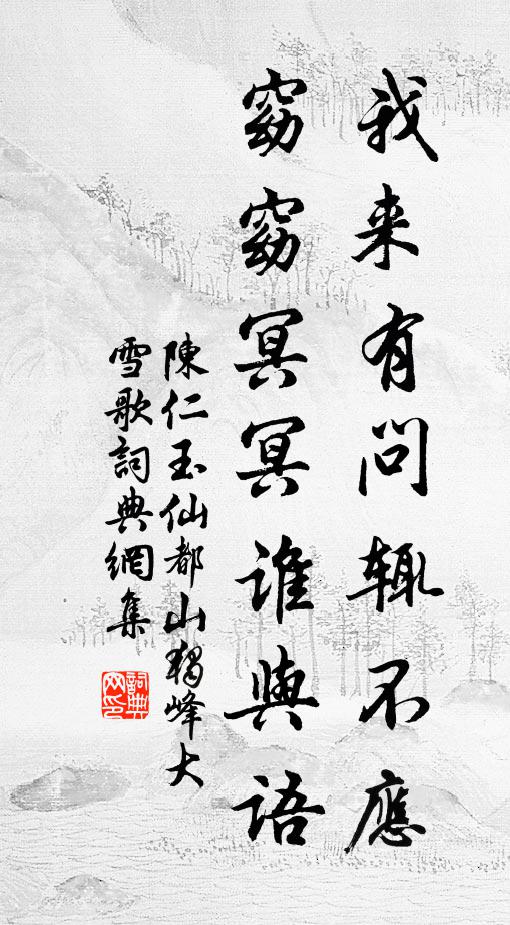 我来有问辄不應
窈窈冥冥谁與语
陳仁玉仙都山獨峰大
雪歌詞典網集
詞典网印